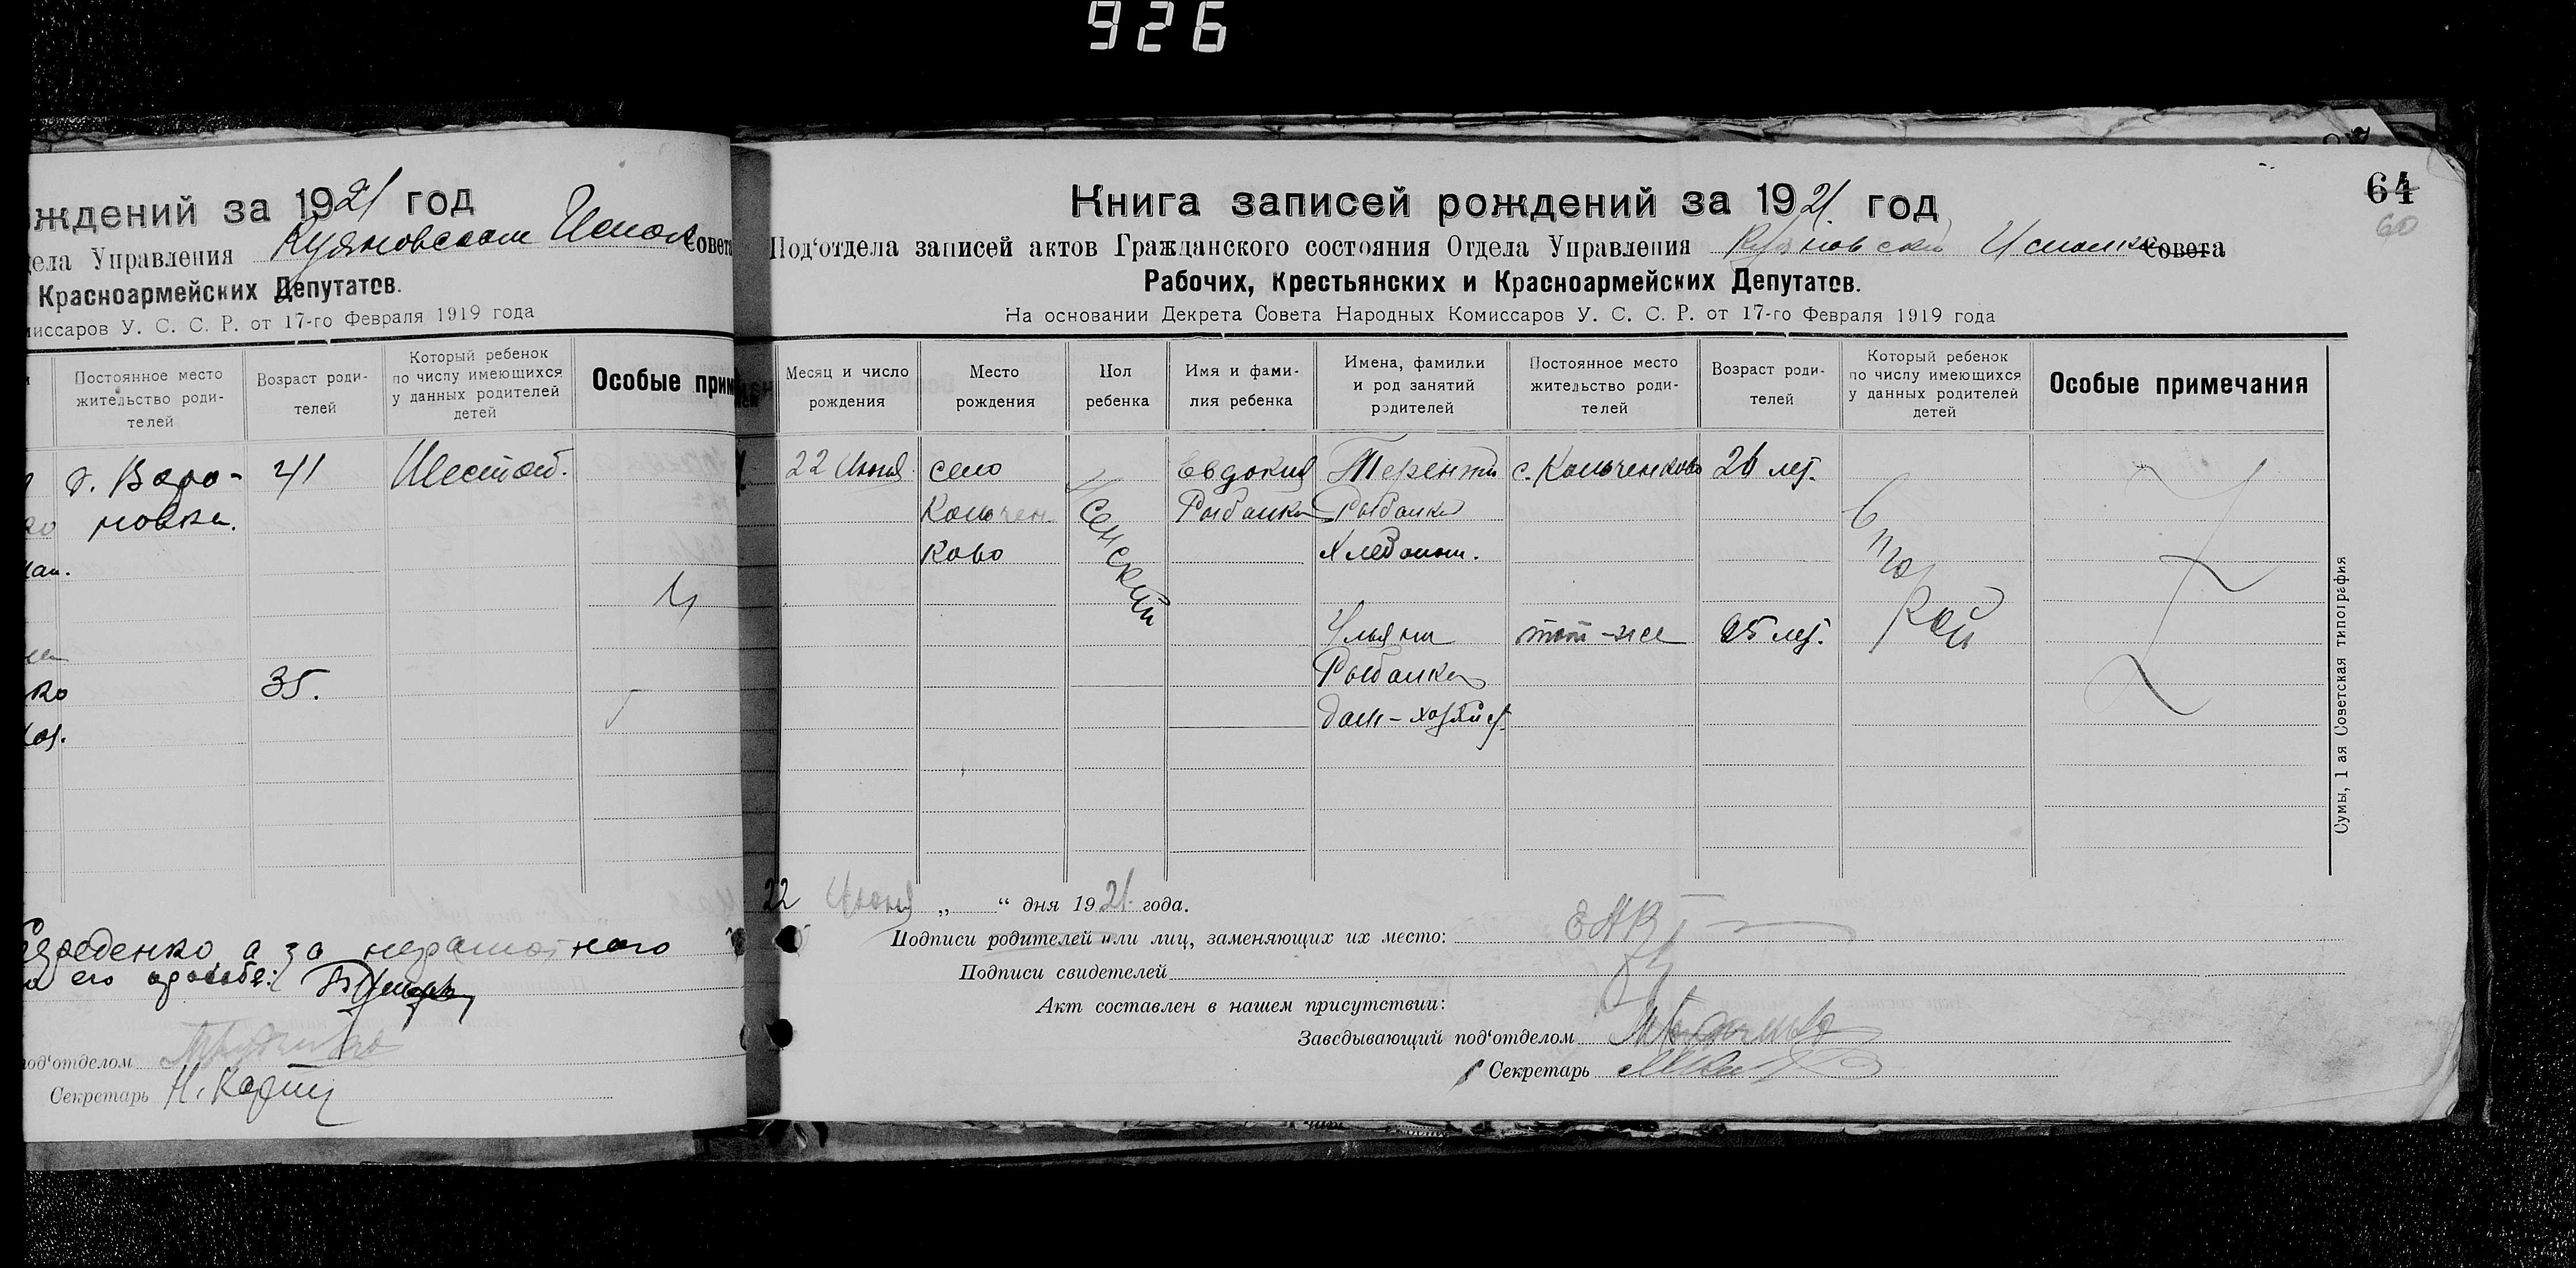 926
ждений за 1921 год
дела Управления Куяновском Испол Совета
Красноармейских Депутатов.
миссаров У. С. С. Р. от 17-го Февраля 1919 года
Постоянное место жительство роди-телей
Возраст роди-телей
Который ребенок по числу имеющихся у данных родителей детей
Особые прим
д. Воро-
новка.
41
Шестой.
ко
35.
а за неграмотного
его просьбе:
под‘отделом
Секретарь Н.
64
60
Книга записей рождений за 1921 год
Под‘отдела записей актов Гражданского состояния Отдела Управления Совета
Рабочих, Крестьянских и Красноармейских Депутатов.
На основании Декрета Совета Народных Комиссаров У. С. С. Р. от 17-го Февраля 1919 года
Месяц и число рождения
Место рождения
Пол ребенка
Имя и фами-лия ребенка
Имена, фамилии и род занятий родителей
Постоянное место жительство роди-телей
Возраст роди-телей
Который ребенок по числу имеющихся у данных родителей детей
Особые примечания
22 Июня
село
Кольчен
ково
Женский
Евдокия
Рыбалка
Терентий
Рыбалка
Хлебопаш.
с. Кольченково
26 лет.
Второй
Ульяна
Рыбалка
дом-хозяйст.
там-же
25 лет.
Сумы, 1 ая Советская типография
22 Июня „ “ дня 1921 года.
Подписи родителей или лиц, заменяющих их место:
Подписи свидетелей
Акт составлен в нашем присутствии:
Заведывающий под‘отделом
Секретарь